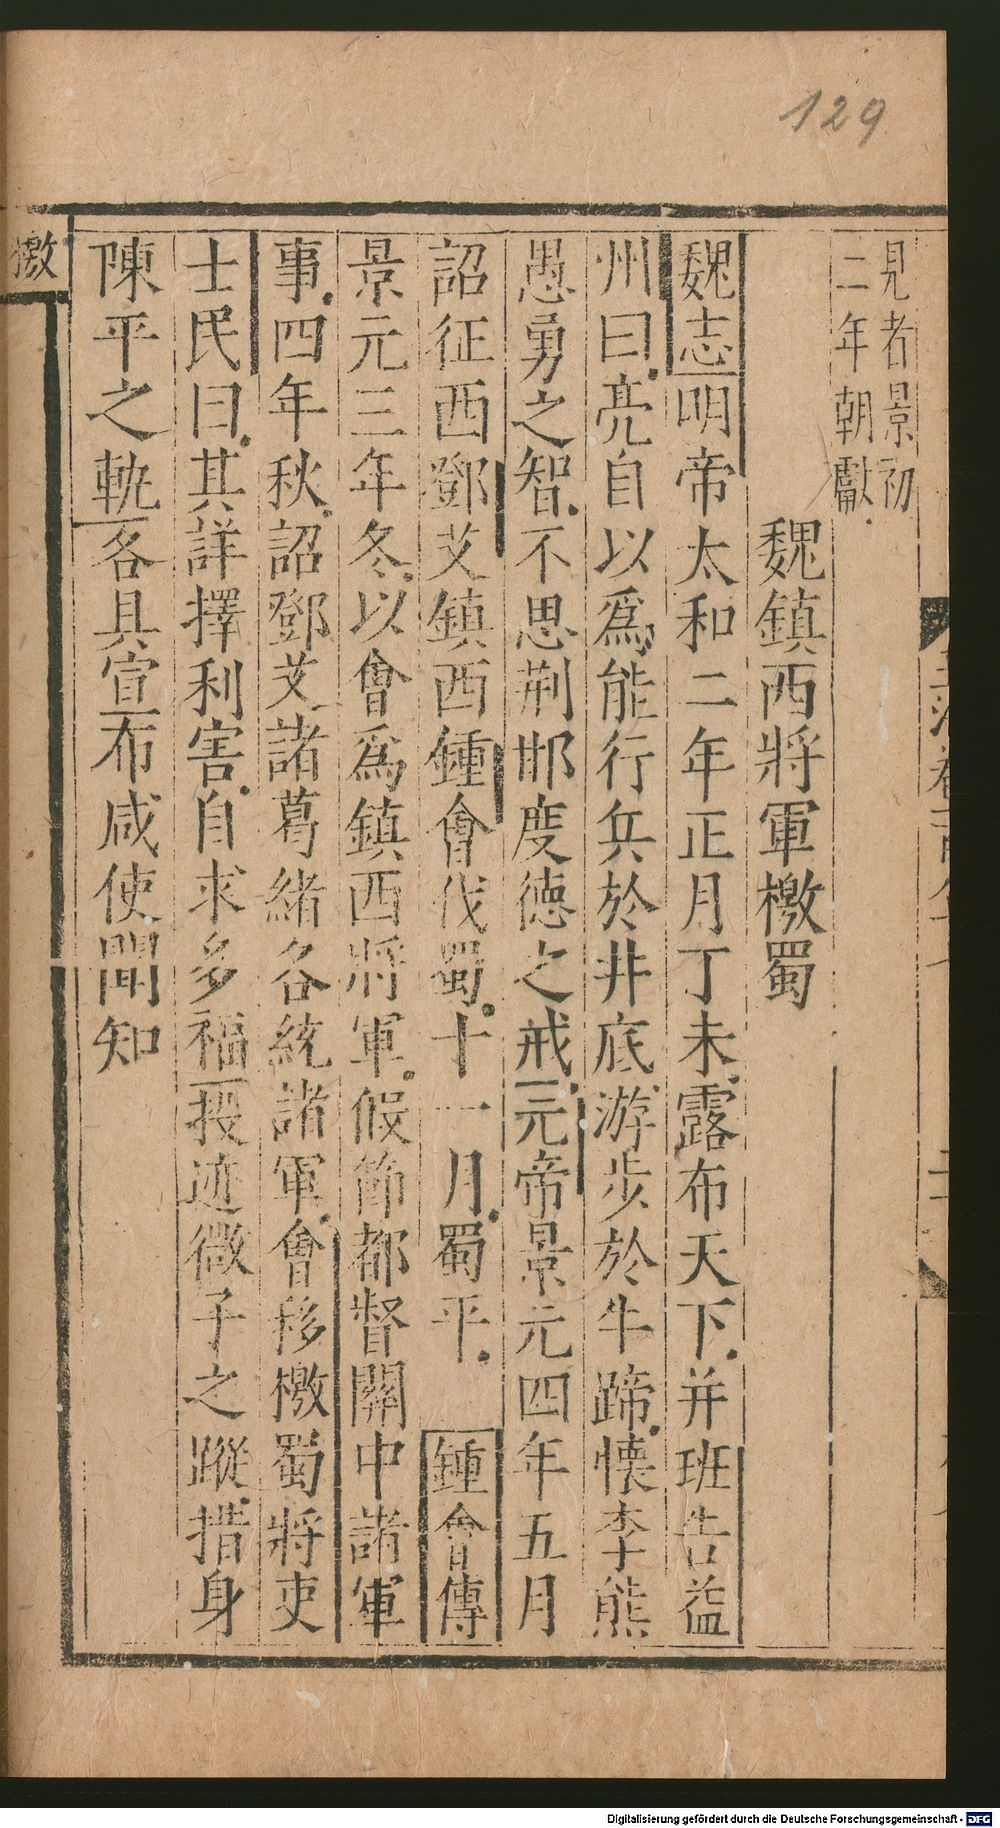 129
見者景初
二年朝獻
魏鎮西將軍檄蜀
魏志明帝太和二年正月丁未露布天下并班告益
州曰亮自以爲能行兵於井底游步於牛蹄懷李熊
愚勇之智不思荆邯度德之戒元帝景元四年五月
詔征西鄧艾鎮西鍾會伐蜀十一月蜀平 鍾會傳
景元三年冬以會爲鎮西將軍假節都督關中諸軍
事四年秋詔鄧艾諸葛緒各統諸軍會移檄蜀將吏
士民曰其詳擇利害自求多福投迹微子之蹤措身
陳平之軌各具宣布咸使聞知
檄
Digitalisierung gefördert durch die Deutsche Forschungsgemeinschaft - DFG